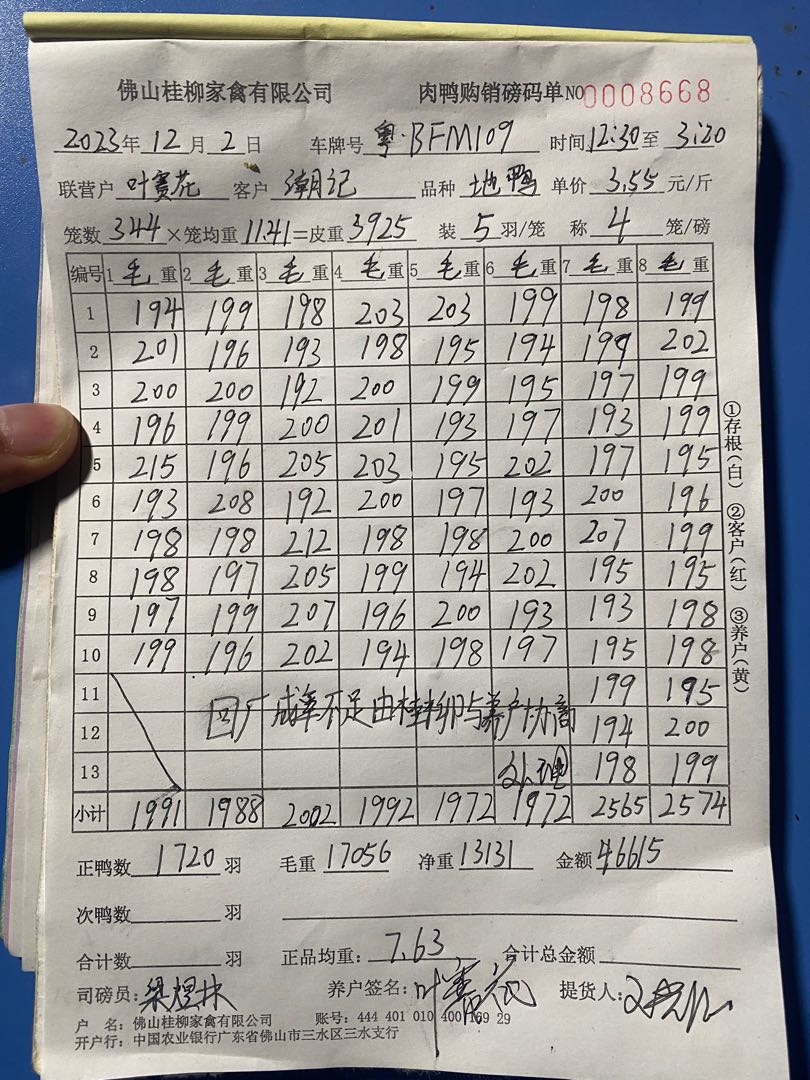 佛山桂柳家禽有限公司 肉鸭购销磅码单 NO 0008668
2023年12月2日 车牌号 粤·BFM109 时间 12:30 至 3:20
联营户 叶赛花 客户 潮记 品种 地鸭 单价 3.55 元/斤
笼数 344 ×笼均重 11.41 =皮重 3925 装 5 羽/笼 称 4 笼/磅
编号 1 毛重 2 毛重 3 毛重 4 毛重 5 毛重 6 毛重 7 毛重 8 毛重
1 194 199 198 203 203 199 198 199
2 201 196 193 198 195 194 199 202
3 200 200 192 200 199 195 197 199
4 196 199 200 201 193 197 193 199
5 215 196 205 203 195 202 197 195
6 193 208 192 200 197 193 200 196
7 198 198 212 198 198 200 207 199
8 198 197 205 199 194 202 195 195
9 197 199 207 196 200 193 193 198
10 199 196 202 194 198 197 195 198
11 199 195
回厂成率不足由桂柳与养户协商
12 194 200
13 处理 198 199
小计 1991 1988 2002 1992 1972 1972 2565 2574
①存根(白) ②客户(红) ③养户(黄)
正鸭数 1720 羽 毛重 17056 净重 13131 金额 46615
次鸭数 羽
合计数 羽 正品均重: 7.63 合计总金额
司磅员: 梁煜林 养户签名: 叶赛花 提货人:
户 名: 佛山桂柳家禽有限公司 账号: 444 401 010 400 169 29
开户行: 中国农业银行广东省佛山市三水区三水支行